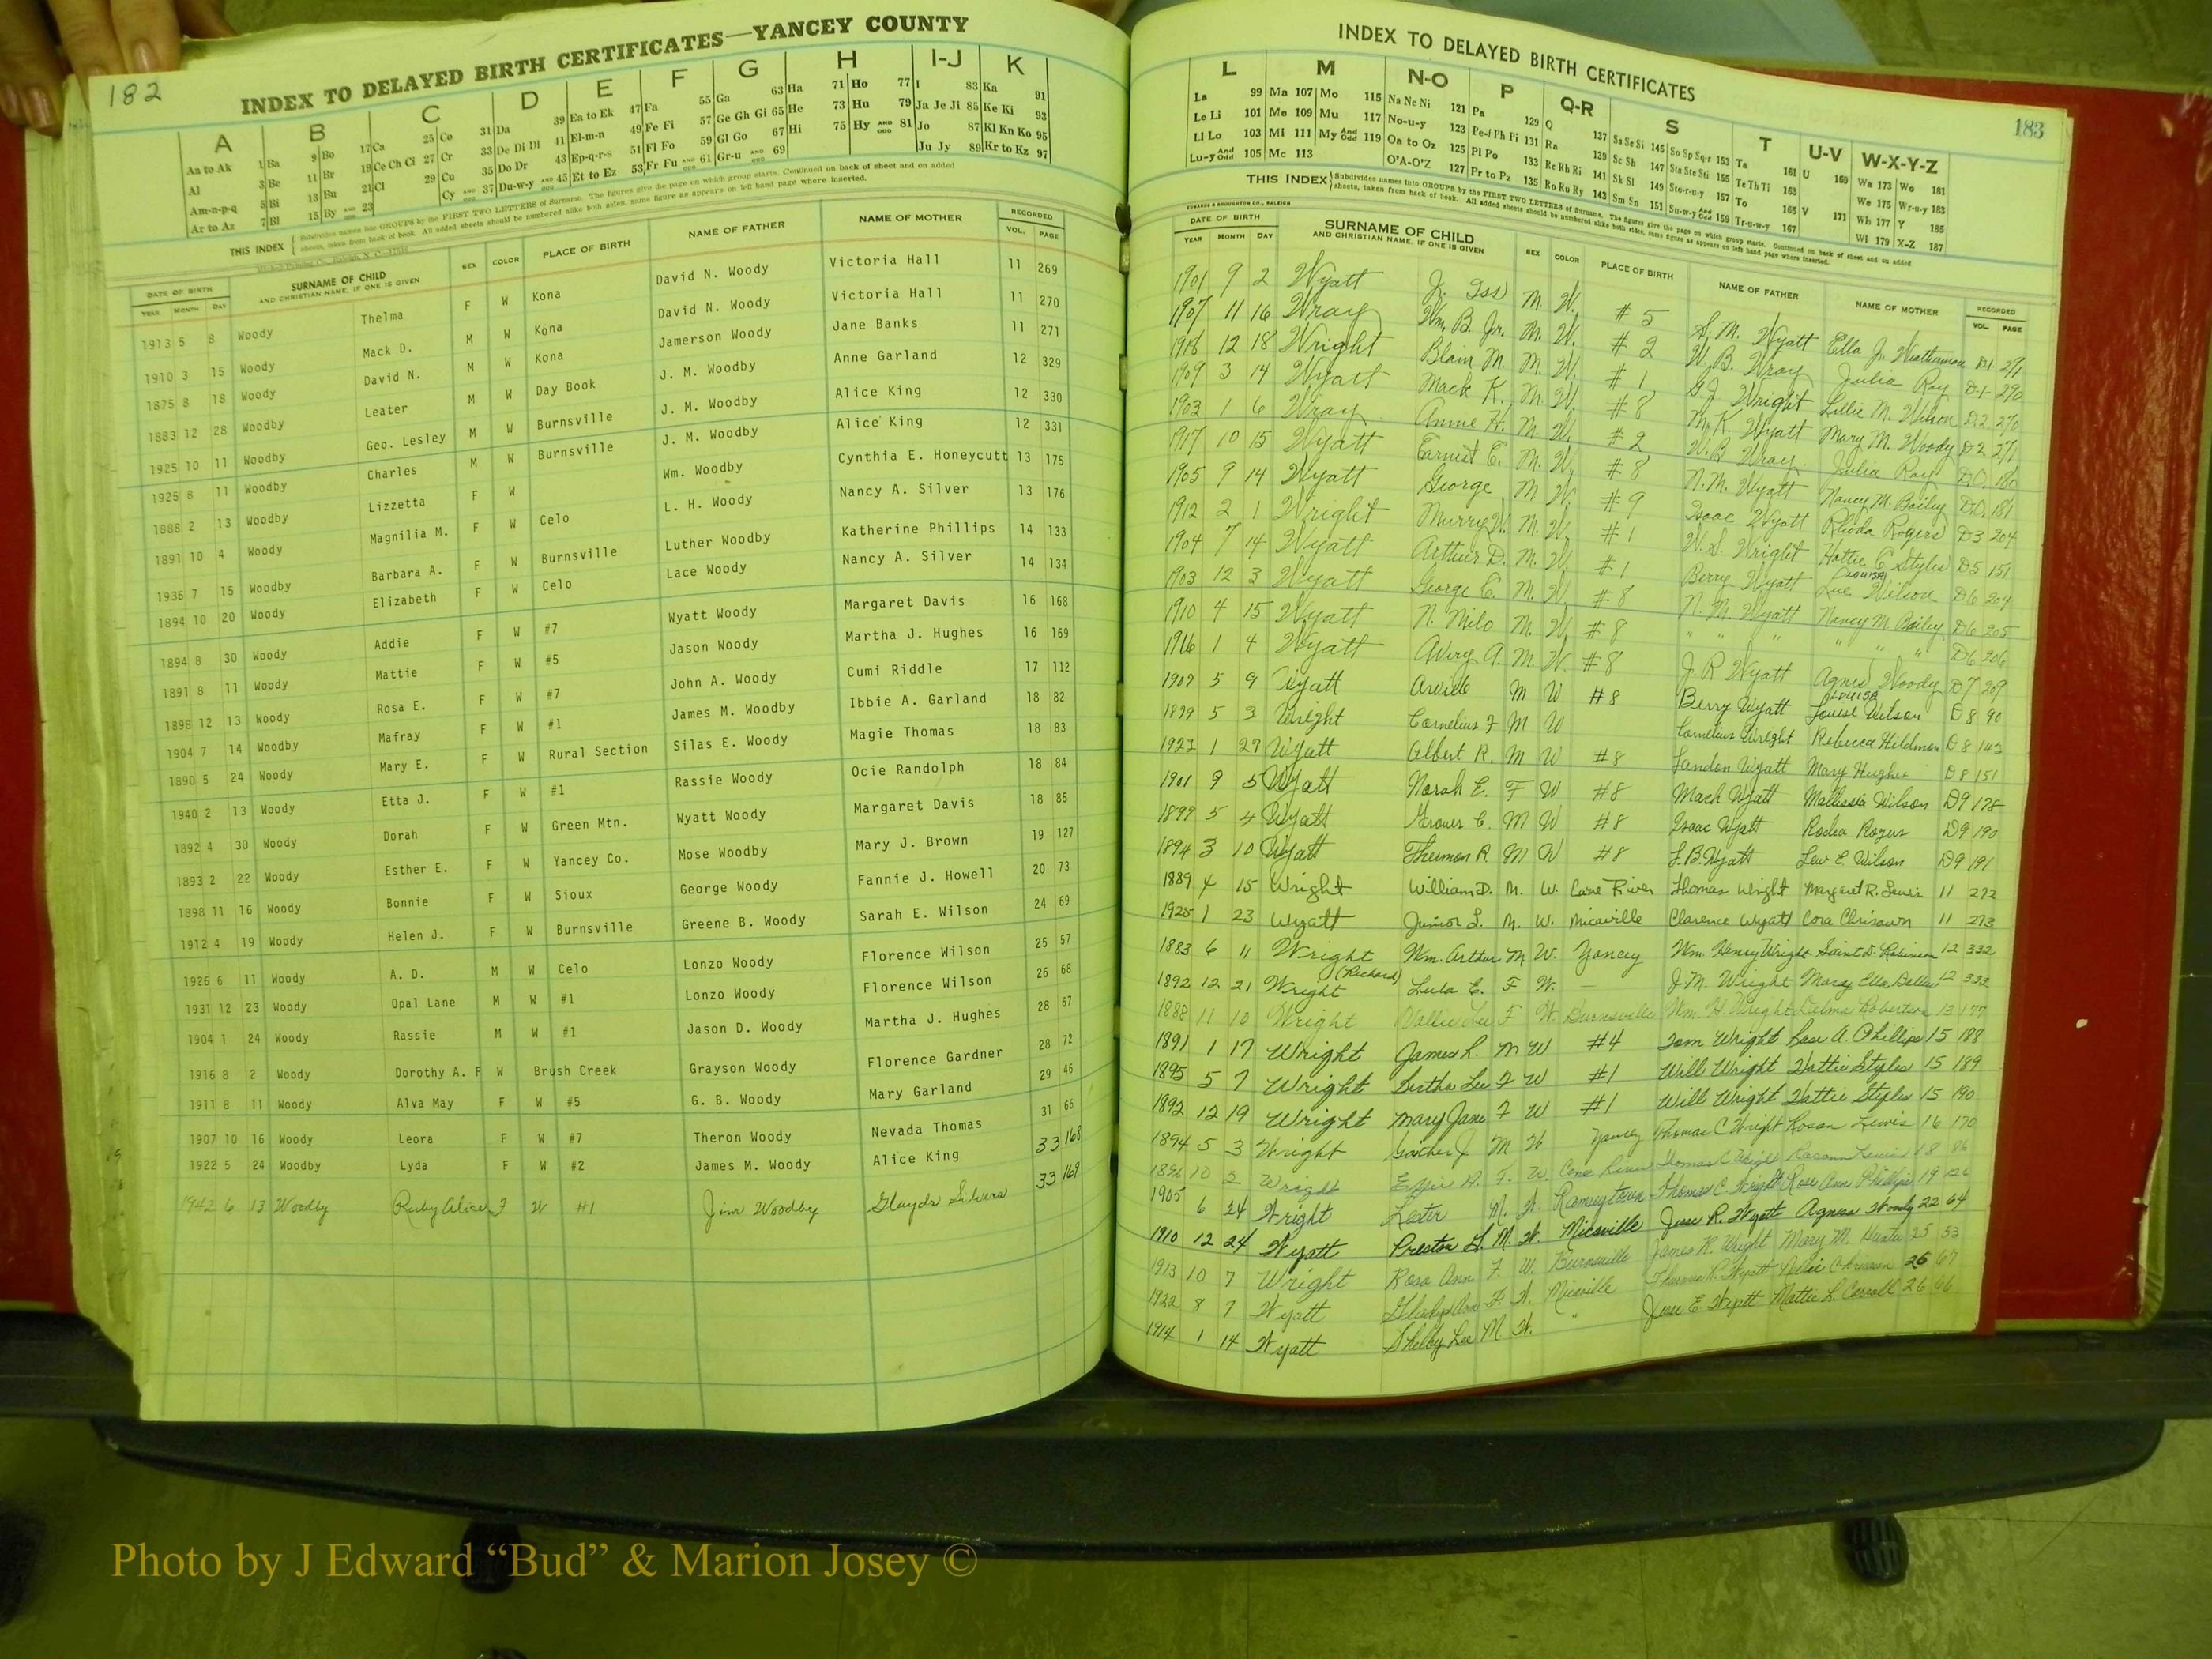 182
INDEX TO DELAYED BIRTH CERTIFICATES—YANCEY COUNTY
A B C D E F G H I-J K
Aa to Ak 1 Ba 9 Bo 17 Ca 25 Co 31 Da 39 Ea to Ek 47 Fa 55 Ga 63 Ha 71 Ho 77 I 83 Ka 91
Al 3 Be 11 Br 19 Ce Ch Ci 27 Cr 33 De Di Dl 41 El-m-n 49 Fe Fi 57 Ge Gh Gi 65 He 73 Hu 79 Ja Je Ji 85 Ke Ki 93
Am-n-p-q 5 Bi 13 Bu 21 Cl 29 Cu 35 Do Dr 43 Ep-q-r-s 51 Fl Fo 59 Gl Go 67 Hi 75 Hy AND ODD 81 Jo 87 Kl Kn Ko 95
Ar to Az 7 Bl 15 By AND ODD 23 Cy AND ODD 37 Du-w-y AND ODD 45 Et to Ez 53 Fr Fu AND ODD 61 Gr-u AND ODD 69 Ju Jy 89 Kr to Kz 97
THIS INDEX Subdivides names into GROUPS by the FIRST TWO LETTERS of Surname. The figures give the page on which group starts. Continued on back of sheet and on added
sheets, taken from back of book. All added sheets should be numbered alike both sides, same figure as appears on left hand page where inserted.
DATE OF BIRTH SURNAME OF CHILD SEX COLOR PLACE OF BIRTH NAME OF FATHER NAME OF MOTHER RECORDED
YEAR MONTH DAY AND CHRISTIAN NAME, IF ONE IS GIVEN VOL. PAGE
1913 5 8 Woody Thelma F W Kona David N. Woody Victoria Hall 11 269
1910 3 15 Woody Mack D. M W Kona David N. Woody Victoria Hall 11 270
1875 8 18 Woody David N. M W Kona Jamerson Woody Jane Banks 11 271
1883 12 28 Woodby Leater M W Day Book J. M. Woodby Anne Garland 12 329
1925 10 11 Woodby Geo. Lesley M W Burnsville J. M. Woodby Alice King 12 330
1925 8 11 Woodby Charles M W Burnsville J. M. Woodby Alice King 12 331
1888 2 13 Woodby Lizzetta F W Wm. Woodby Cynthia E. Honeycutt 13 175
1891 10 4 Woody Magnilia M. F W Celo L. H. Woody Nancy A. Silver 13 176
1936 7 15 Woodby Barbara A. F W Burnsville Luther Woodby Katherine Phillips 14 133
1894 10 20 Woody Elizabeth F W Celo Lace Woody Nancy A. Silver 14 134
1894 8 30 Woody Addie F W #7 Wyatt Woody Margaret Davis 16 168
1891 8 11 Woody Mattie F W #5 Jason Woody Martha J. Hughes 16 169
1898 12 13 Woody Rosa E. F W #7 John A. Woody Cumi Riddle 17 112
1904 7 14 Woodby Mafray F W #1 James M. Woodby Ibbie A. Garland 18 82
1890 5 24 Woody Mary E. F W Rural Section Silas E. Woody Magie Thomas 18 83
1940 2 13 Woody Etta J. F W #1 Rassie Woody Ocie Randolph 18 84
1892 4 30 Woody Dorah F W Green Mtn. Wyatt Woody Margaret Davis 18 85
1893 2 22 Woody Esther E. F W Yancey Co. Mose Woodby Mary J. Brown 19 127
1898 11 16 Woody Bonnie F W Sioux George Woody Fannie J. Howell 20 73
1912 4 19 Woody Helen J. F W Burnsville Greene B. Woody Sarah E. Wilson 24 69
1926 6 11 Woody A. D. M W Celo Lonzo Woody Florence Wilson 25 57
1931 12 23 Woody Opal Lane M W #1 Lonzo Woody Florence Wilson 26 68
1904 1 24 Woody Rassie M W #1 Jason D. Woody Martha J. Hughes 28 67
1916 8 2 Woody Dorothy A. F W Brush Creek Grayson Woody Florence Gardner 28 72
1911 8 11 Woody Alva May F W #5 G. B. Woody Mary Garland 29 46
1907 10 16 Woody Leora F W #7 Theron Woody Nevada Thomas 31 66
1922 5 24 Woodby Lyda F W #2 James M. Woody Alice King 33 168
1942 6 13 Woodby Ruby Alice F W #1 Jim Woodby 33 169
INDEX TO DELAYED BIRTH CERTIFICATES
183
L M N-O P Q-R S T U-V W-X-Y-Z
La 99 Ma 107 Mo 115 Na Ne Ni 121 Pa 129 Q 137 Sa Se Si 145 So Sp Sq-r 153 Ta 161 U 169 Wa 173 Wo 181
Le Li 101 Me 109 Mu 117 No-u-y 123 Pe-f Ph Pi 131 Ra 139 Sc Sh 147 Sta Ste Sti 155 Te Th Ti 163 We 175 Wr-u-y 183
Ll Lo 103 Mi 111 My And Odd 119 Oa to Oz 125 Pl Po 133 Re Rh Ri 141 Sk Sl 149 Sto-r-u-y 157 To 165 V 171 Wh 177 Y 185
Lu-y And Odd 105 Mc 113 O'A-O'Z 127 Pr to Pz 135 Ro Ru Ry 143 Sm Sn 151 Su-w-y And Odd 159 Tr-u-w-y 167 Wi 179 X-Z 187
THIS INDEX Subdivides names into GROUPS by the FIRST TWO LETTERS of Surname. The figures give the page on which group starts. Continued on back of sheet and on added
sheets, taken from back of book. All added sheets should be numbered alike both sides, same figure as appears on left hand page where inserted.
EDWARDS & BROUGHTON CO., RALEIGH
DATE OF BIRTH SURNAME OF CHILD SEX COLOR PLACE OF BIRTH NAME OF FATHER NAME OF MOTHER RECORDED
YEAR MONTH DAY AND CHRISTIAN NAME, IF ONE IS GIVEN VOL. PAGE
1901 9 2 Wyatt M. W. #5 S. M. Wyatt Ella J. D1
1907 11 16 Wray Wm. B. Jr. M. W. #2 W. B. Wray Julia Ray D-1 290
1918 12 18 Wright Blain M. M. W. #1 Wright Lillie M. Wilson D2 270
1909 3 14 Wyatt Mack K. M. W. #8 M. K. Wyatt Mary M. Woody D2 271
1903 1 6 Wray Annie H. M. W. #2 W. B. Wray Julia Ray 180
1917 10 15 Wyatt Earnest E. M. W. #8 N. M. Wyatt Nancy M. Bailey 181
1905 9 14 Wyatt George M W. #9 Isaac Wyatt Rhoda Rogers D3 204
1912 2 1 Wright Murry M. W. #1 W. S. Wright Hattie C. Styles D5 151
1904 7 14 Wyatt Arthur D. M. W. #1 Berry Wyatt Louisa Wilson D6 204
1903 12 3 Wyatt George E. M. W. #8 N. M. Wyatt Nancy M Bailey D6 205
1910 4 15 Wyatt N. Milo M. W. #8 " " " " " " D6 206
1916 1 4 Wyatt Avery A. M. W. #8 J. R Wyatt Agnes Woody D7 209
1907 5 9 Wyatt M W #8 Berry Wyatt Louisa Louise Wilson D8 90
1899 5 3 Wright Cornelius F M W Cornelius Wright Rebecca D8 142
1923 1 27 Wyatt Albert R. M W #8 Landon Wyatt Mary Hughes D8 151
1901 9 5 Wyatt Norah E. F W #8 Mack Wyatt Wilson D9 178
1899 5 4 Wyatt Grover C. M W #8 Isaac Wyatt Rodea Rogers D9 190
1894 3 10 Wyatt Thermon R. M W #8 Wyatt E. Wilson D9 191
1889 4 15 Wright William D. M. W. Cane River Thomas Wright Margaret R. Lewis 11 272
1925 1 23 Wyatt Junior L. M. W. Micaville Clarence Wyatt Cora Chrisawn 11 273
1883 6 11 Wright Wm. Arthur M W. Yancey Wm. Henry Wright 12 332
(Richard)
1892 12 21 Wright Lula E. F W. — J. M. Wright Mary Ella 12 333
1888 11 10 Wright F W Burnsville Wm. H. Wright 13 177
1891 1 17 Wright James L. M W #4 Tom Wright A. Phillips 15 188
1895 5 7 Wright Bertha Lee F W #1 Will Wright Hattie Styles 15 189
1892 12 19 Wright Mary Jane F W #1 Will Wright Hattie Styles 15 190
1894 5 3 Wright M W Yancey Thomas C Wright Lewis 16 170
1896 10 2 Wright F. W. Cane River Thomas C Wright Lewis 18 86
1905 6 24 Wright Lester M. W. Ramseytown Thomas C. Wright Rose Ann Phillips 19
1910 12 24 Wyatt Preston M. W. Micaville Jesse R. Wyatt Agnes Woody 22 64
1913 10 7 Wright Rosa Ann F. W. Burnsville James R. Wright Mary M. 25 53
1922 8 7 Wyatt Gladys Ann F. W. Micaville Wyatt Chrisawn 26 67
1914 1 14 Wyatt Shelby Lee M W. " Jesse E. Wyatt Mattie L. 26 66
Photo by J Edward “Bud” & Marion Josey ©